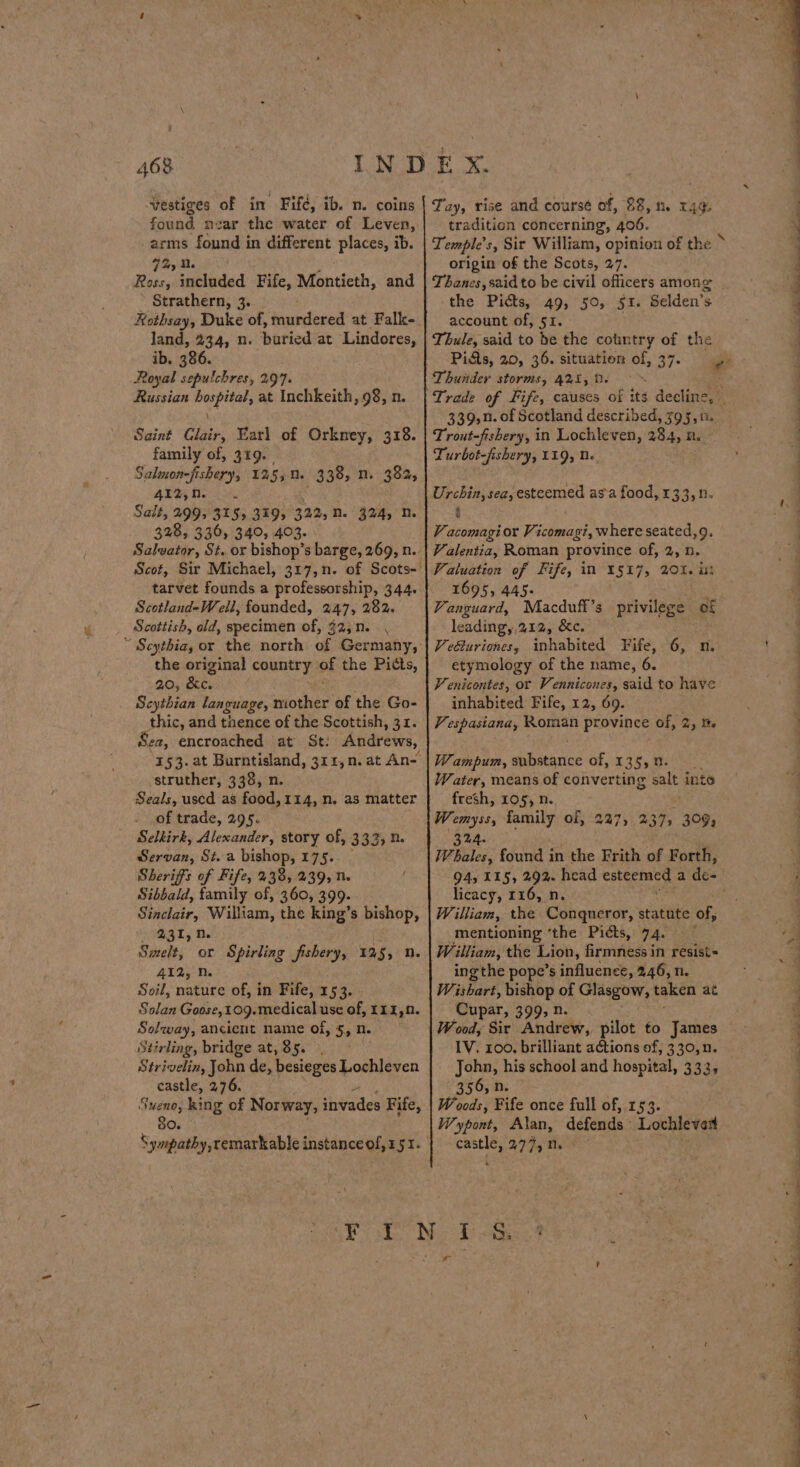 468 INDEX.
vestiges of in Fife, ib. n. coins
found near the water of Leven,
arms found in different places, ib.
72, n.
Ross, included Fife, Montieth, and
Strathern, 3.
Rothsay, Duke of, murdered at Falk-
land, 234, n. buried at Lindores,
ib. 386.
Royal sepulchres, 297.
Russian hospital, at Inchkeith, 98, n.
Saint Clair, Earl of Orkney, 318.
family of, 319.
Salmon-fishery, 125, n. 338, n. 382,
412, n.
Salt, 299, 315, 319, 322, n. 324, n.
328, 336, 340, 403.
Salvator, St. or bishop's barge, 269, n.
Scot, Sir Michael, 317, n. of Scots-
tarvet founds a professorship, 344.
Scotland-Well, founded, 247, 282.
Scottish, old, specimen of, 32, n.
Scythia, or the north of Germany,
the original country of the Picts,
20, &c.
Scythian language, mother of the Go-
thic, and thence of the Scottish, 31.
Sea, encroached at St. Andrews,
153. at Burntisland, 311, n. at An-
struther, 338, n.
Seals, used as food, 114, n. as matter
of trade, 295.
Selkirk, Alexander, story of, 333, n.
Servan, St. a bishop, 175.
Sheriffs of Fife, 238, 239, n.
Sibbald, family of, 360, 399.
Sinclair, William, the king's bishop,
231, n.
Smelt, or Spirling fishery, 125, n.
412, n.
Soil, nature of, in Fife, 153.
Solan Goose, 109. medical use of, 111, n.
Solway, ancient name of, 5, n.
Stirling, bridge at, 85.
Strivelin, John de, besieges Lochleven
castle, 276.
Sueno, king of Norway, invades Fife,
80.
Sympathy, remarkable instance of, 151.
Tay, rise and course of, 88, n. 149.
tradition concerning, 406.
Temple's, Sir William, opinion of the
origin of the Scots, 27.
Thanes, said to be civil officers among
the Picts, 49, 50, 51. Selden's
account of, 51.
Thule, said to be the country of the
Picts, 20, 36. situation of, 37.
Thunder storms, 421, n.
Trade of Fife, causes of its decline,
339, n. of Scotland described, 395, n.
Trout-fishery, in Lochleven, 284, n.
Turbot-fishery, 119, n.
Urchin, sea, esteemed as a food, 133, n.
Vacomagi or Vicomagi, where seated, 9.
Valentia, Roman province of, 2, n.
Valuation of Fife, in 1517, 201. in
1695, 445.
Vanguard, Macduff's privilege of
leading, 212, &c.
Vecturiones, inhabited Fife, 6, n.
etymology of the name, 6.
Venicontes, or Vennicones, said to have
inhabited Fife, 12, 69.
Vespasiana, Roman province of, 2, n.
Wampum, substance of, 135, n.
Water, means of converting salt into
fresh, 105, n.
Wemyss, family of, 227, 237, 309,
324.
Whales, found in the Frith of Forth,
94, 115, 292. head esteemed a de-
licacy, 116, n.
William, the Conqueror, statute of,
mentioning the Picts, 74.
William, the Lion, firmness in resist-
ing the pope's influence, 246, n.
Wishart, bishop of Glasgow, taken at
Cupar, 399, n.
Wood, Sir Andrew, pilot to James
IV. 100. brilliant actions of, 330, n.
John, his school and hospital, 333,
356, n.
Woods, Fife once full of, 153.
Wypont, Alan, defends Lochleven
castle, 277, n.
FINIS.